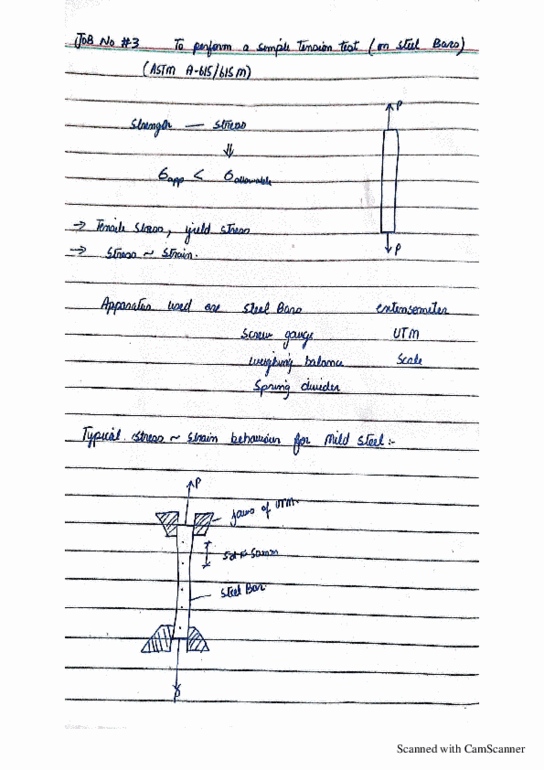 JOB No #3 To perform a simple Tension test (on steel Bars)
(ASTM A-615/615M)
P
Strength — stress
⇓
σapp < σallowable
→ Tensile stress, yield stress
→ Stress ~ Strain.
P
Apparatus used are steel Bars extensometer
Screw gauge UTM
Weighing balance Scale
Spring divider
Typical stress ~ strain behaviour for Mild Steel:-
P
jaws of UTM.
steel Bar
Scanned with CamScanner